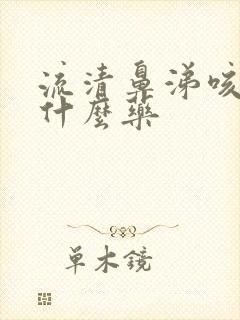 流清鼻涕咳
什麼藥
单木镜